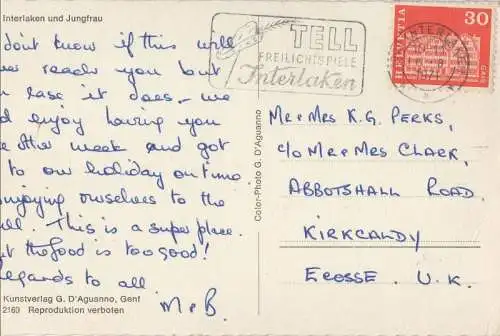 Interlaken und Jungfrau
don't know if this will
reach you but
case it does - we
d enjoy having you
the other week and got
to our holiday on time.
enjoying ourselves to the
This is a super place.
t the food is too good!
egards to all
M & B.
Kunstverlag G. D'Aguanno, Genf
2160 Reproduktion verboten
Color-Photo G. D'Aguanno
TELL
FREILICHTSPIELE
Interlaken
HELVETIA
30
INTERLAKEN
Mr & Mrs K.G. PERKS,
c/o Mr & Mrs CLARK,
ABBOTSHALL ROAD,
KIRKCALDY
ECOSSE. U.K.